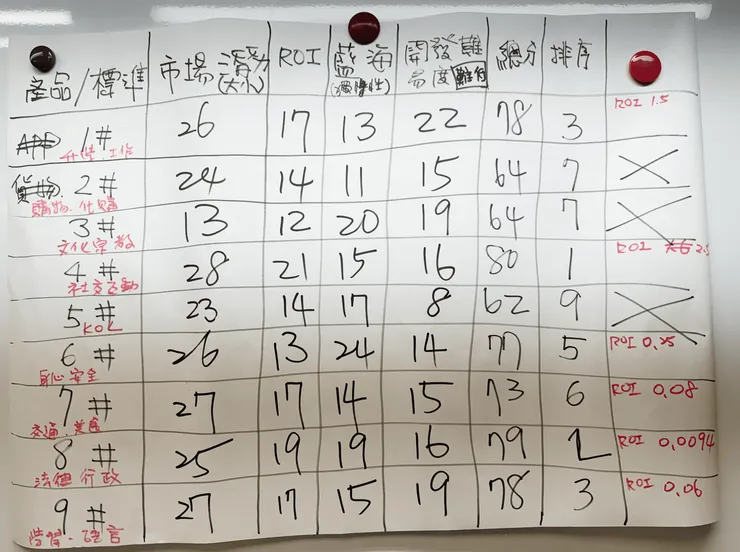 產品/標準 市場 ROI 藍海 開發難 總分 排序
易度
1# 26 17 13 22 78 3 ROI 1.5
工作
2# 24 14 11 15 64 7
購物、代購
3# 13 12 20 19 64 7
文化宗教
4# 28 21 15 16 80 1 ROI 2.5
社交互動
5# 23 14 17 8 62 9
KOL
6# 26 13 24 14 77 5 ROI 0.25
身心安全
7# 27 17 14 15 73 6 ROI 0.08
交通、
8# 25 19 19 16 79 2 ROI 0.0094
法律 行政
9# 27 17 15 19 78 3 ROI 0.06
語言